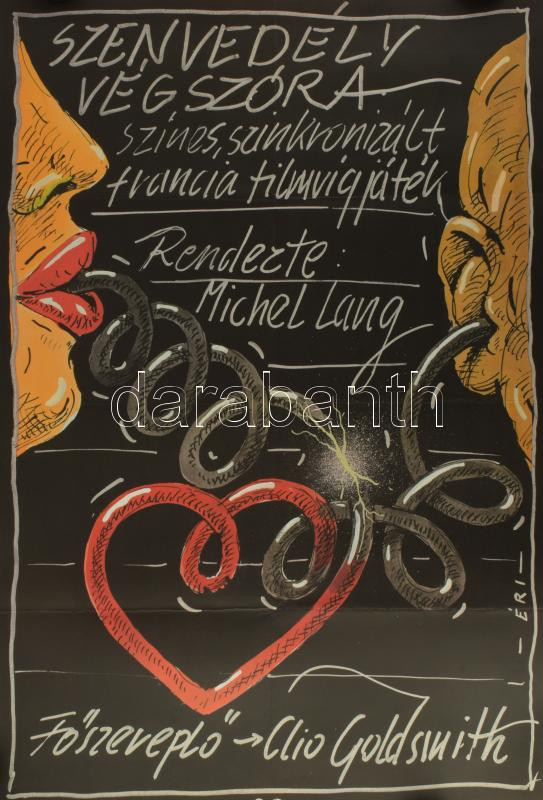 SZENVEDÉLY
VÉGSZÓRA
színes, szinkronizált
francia filmvígjáték
Rendezte:
Michel Lang
darabanth
ÉRI
Főszereplő → Clio Goldsmith